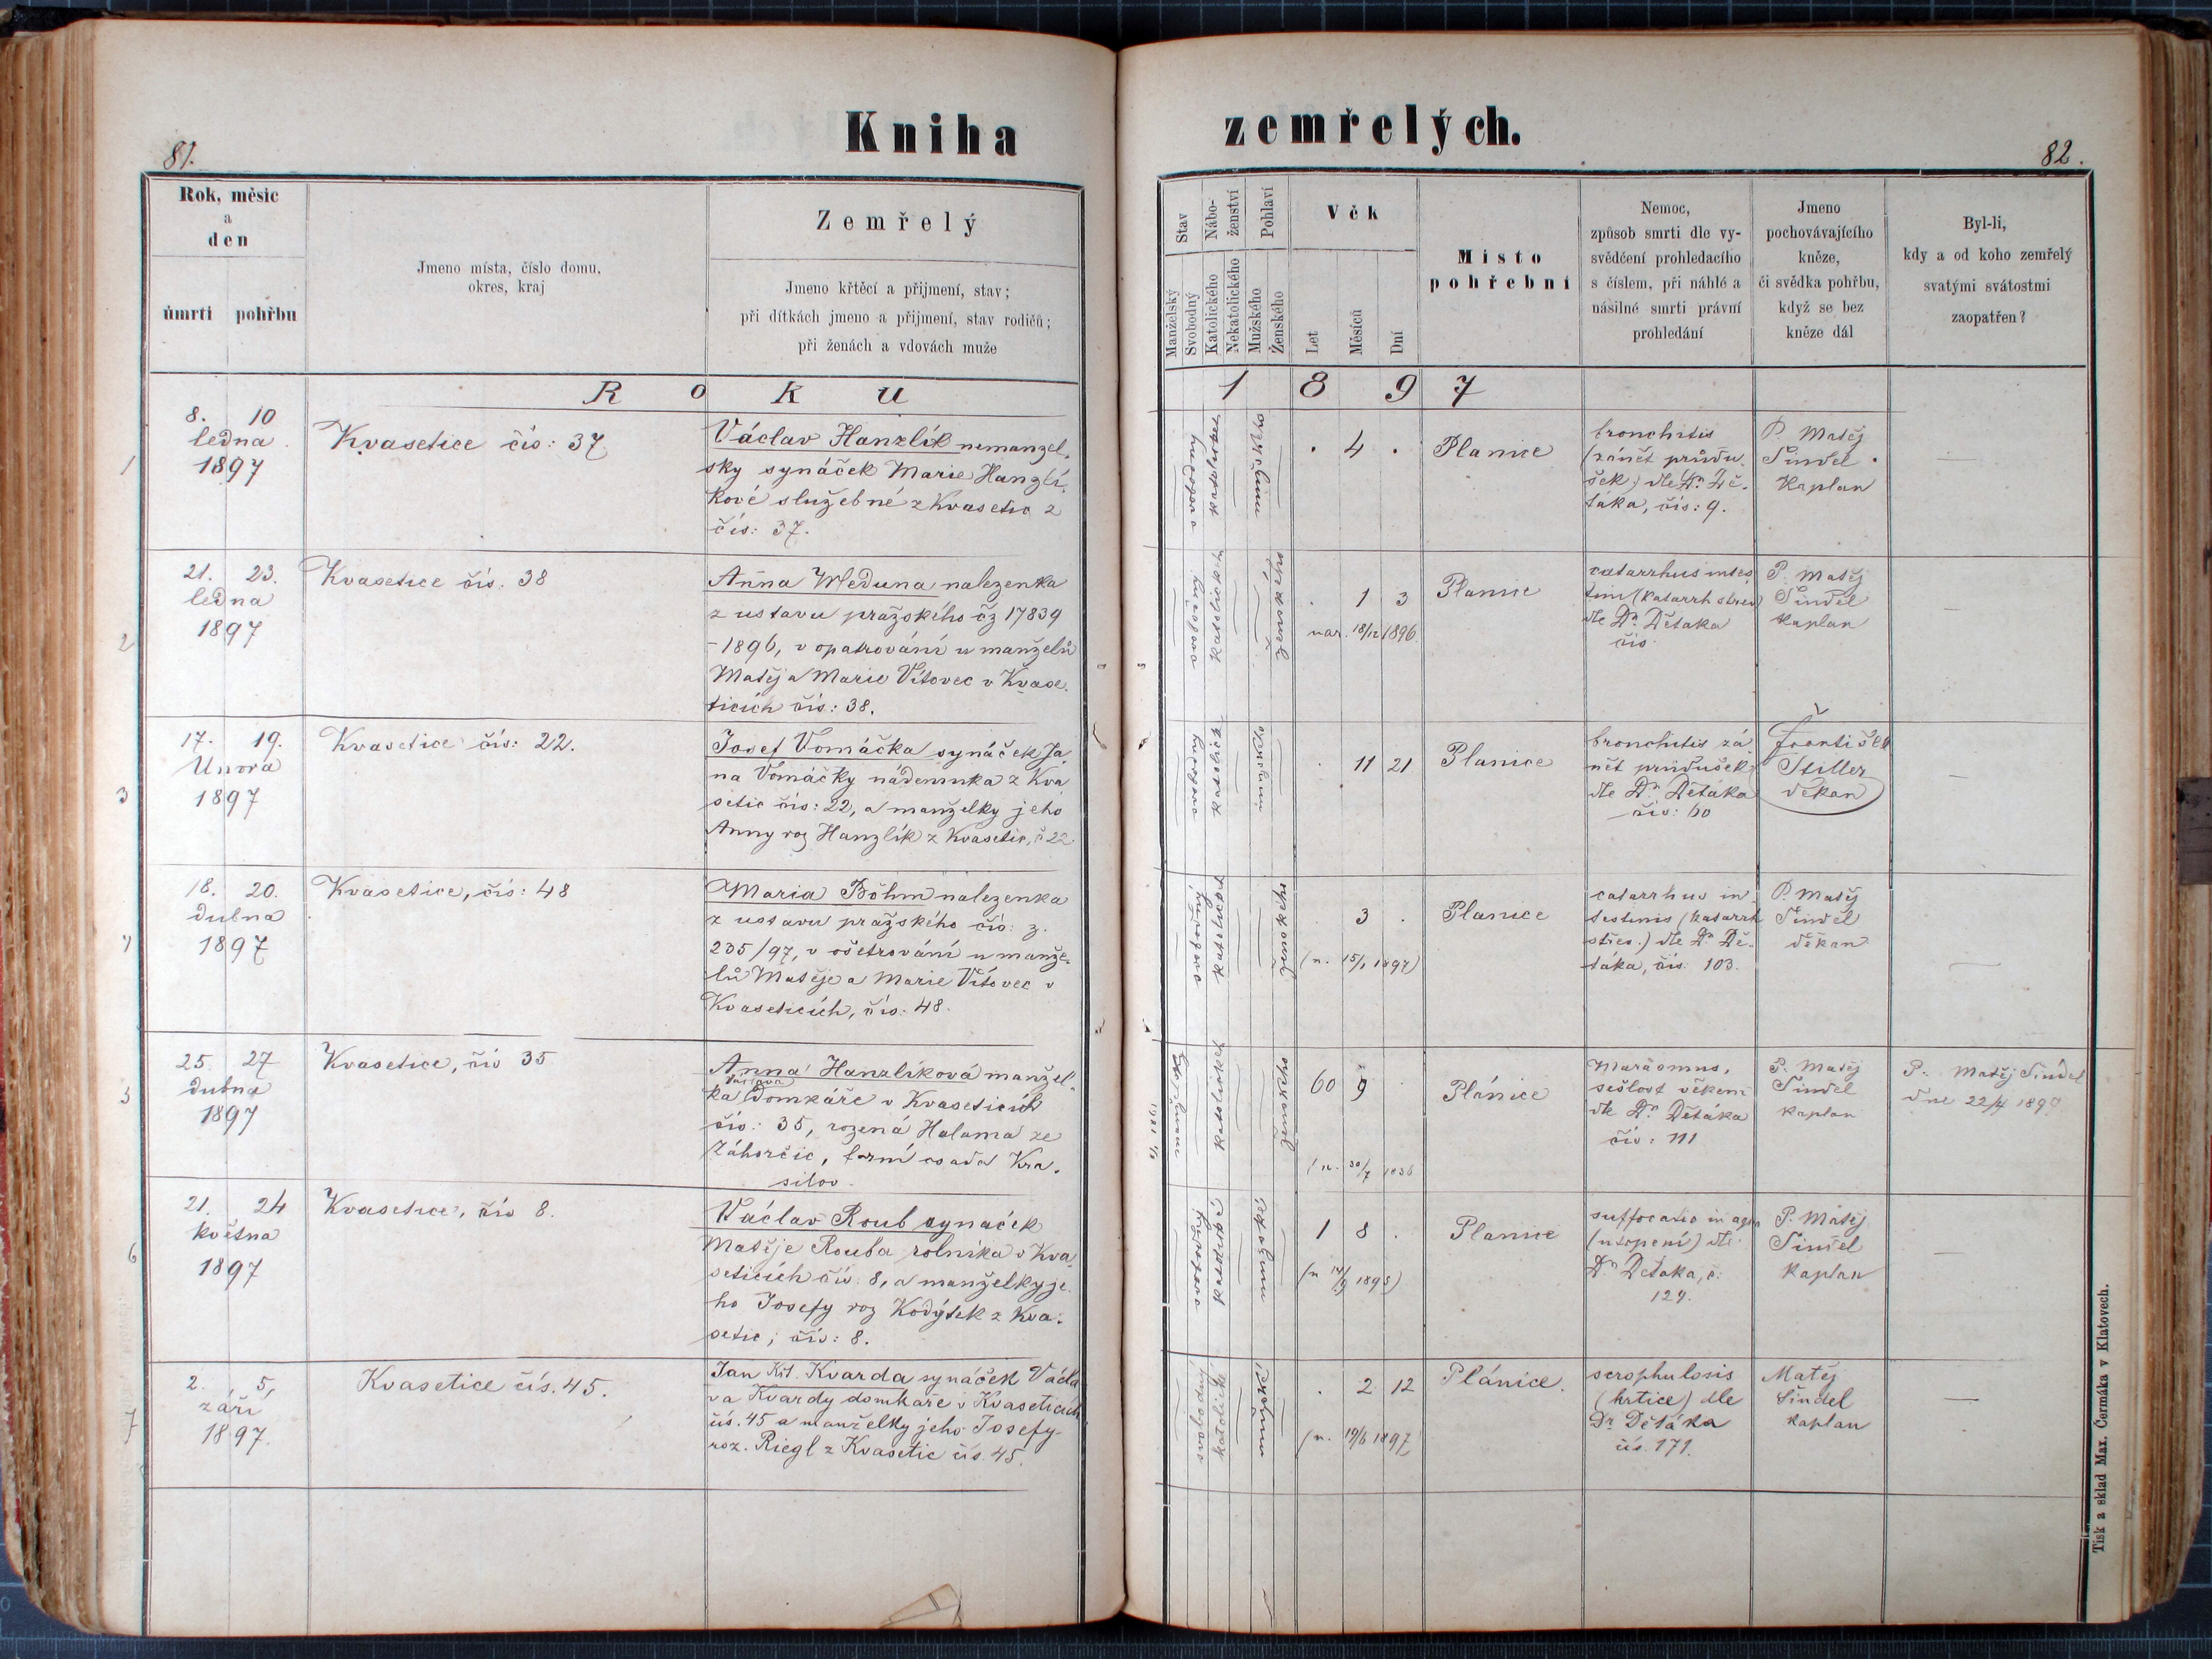 Kniha zemřelých.
81.
82.
Rok, měsíc
a
den
úmrtí pohřbu
Jmeno místa, číslo domu,
okres, kraj
Zemřelý
Jmeno křtěcí a přijmení, stav;
při dítkách jmeno a přijmení, stav rodičů;
při ženách a vdovách muže
Stav
Manželský
Svobodný
Nábo-
ženství
Katolického
Nekatolického
Pohlaví
Mužského
Ženského
Věk
Let
Měsíců
Dní
Místo
pohřební
Nemoc,
způsob smrti dle vy-
svědčení prohledacího
s číslem, při náhlé a
násilné smrti právní
prohledání
Jmeno
pochovávajícího
kněze,
či svědka pohřbu,
když se bez
kněze dál
Byl-li,
kdy a od koho zemřelý
svatými svátostmi
zaopatřen?
Roku 1897
1
8. 10
ledna
1897
Kvasetice čís: 37
Václav Hanzlík nemanžel-
sky synáček Marie Hanzlí-
kové služebné z Kvasetic z
čís: 37.
svobodný
katolické
mužského
. 4 .
Planice
bronchitis
(zánět průdu-
šek) dle Dr. Dě-
táka, čís: 9.
P. Matěj
Šindel
Kaplan
—
2
21. 23.
ledna
1897
Kvasetice čís. 38
Anna Weduna nalezenka
z ustavu pražského čz 17839
-1896, v opatrování u manželů
Matěj a Marie Vítovec v Kvase-
ticích čís: 38.
svobodný
katolického
ženského
. 1 3
nar. 18/12 1896
Planice
catarrhus intes
tini (katarrh střev)
dle Dr. Dětáka
čís
P. Matěj
Šindel
kaplan
—
3
17. 19.
Února
1897
Kvasetice čís: 22.
Josef Vomáčka synáček Ja
na Vomáčky nádenníka z Kva
setic čís: 22, a manželky jeho
Anny roz Hanzlík z Kvasetic, č 22
svobodný
katolick
mužského
. 11 21
Planice
bronchitis zá
nět průdušek
dle Dr. Dětáka
čís: 60
František
Stiller
děkan
—
4
18. 20.
dubna
1897
Kvasetice, čís: 48
Maria Böhm nalezenka
z ustavu pražského čís: z.
235/97, v ošetrování u manže-
lů Matěje a Marie Vítovec v
Kvaseticích, čís: 48.
svobodný
katolické
ženského
3 .
(n. 15/1 1897)
Planice
catarrhus in
testinis (katarrh
střev.) dle Dr. Dě-
táka, čís. 103.
P. Matěj
Šindel
děkan
—
5
25. 27
dubna
1897
Kvasetice, čís 35
Anna Hanzlíková manžel-
ka Václava domkáře v Kvaseticích
čís: 35, rozena Halama ze
Záhorčic, farní osada Kra-
silov.
katolické
ženského
60 9 .
(n. 30/7 1836
Plánice
Marasmus,
sešlost věkem
dle Dr. Dětáka
čís: 111
P. Matěj
Šindel
kaplan
P. Matěj Šindel
dne 22/4 1897
6
21. 24
května
1897
Kvasetice, čís 8.
Václav Roub synáček
Matěje Rouba rolníka v Kva
seticích čís: 8, a manželky je-
ho Josefy roz Kodýtek z Kva-
setic, čís: 8.
svobodný
katolické
mužského
1 8 .
(n 14/9 1895)
Planice
suffocatio in aqua
(utopení) dle
Dr. Dětáka, č.
124.
P. Matěj
Šindel
kaplan
—
7
2. 5.
září
1897.
Kvasetice čís. 45.
Jan Křt. Kvarda synáček Václa
va Kvardy domkáře v Kvaseticích
čís. 45 a manželky jeho Josefy
roz. Riegl z Kvasetic čís. 45.
svobodný
katolické
mužského
. 2 12
(n. 19/6 1897
Plánice.
scrophulosis
(krtice) dle
Dr Dětáka
čís. 171.
Matěj
Šindel
kaplan
—
Tisk a sklad Max. Čermáka v Klatovech.